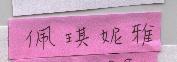 佩琪妮雅